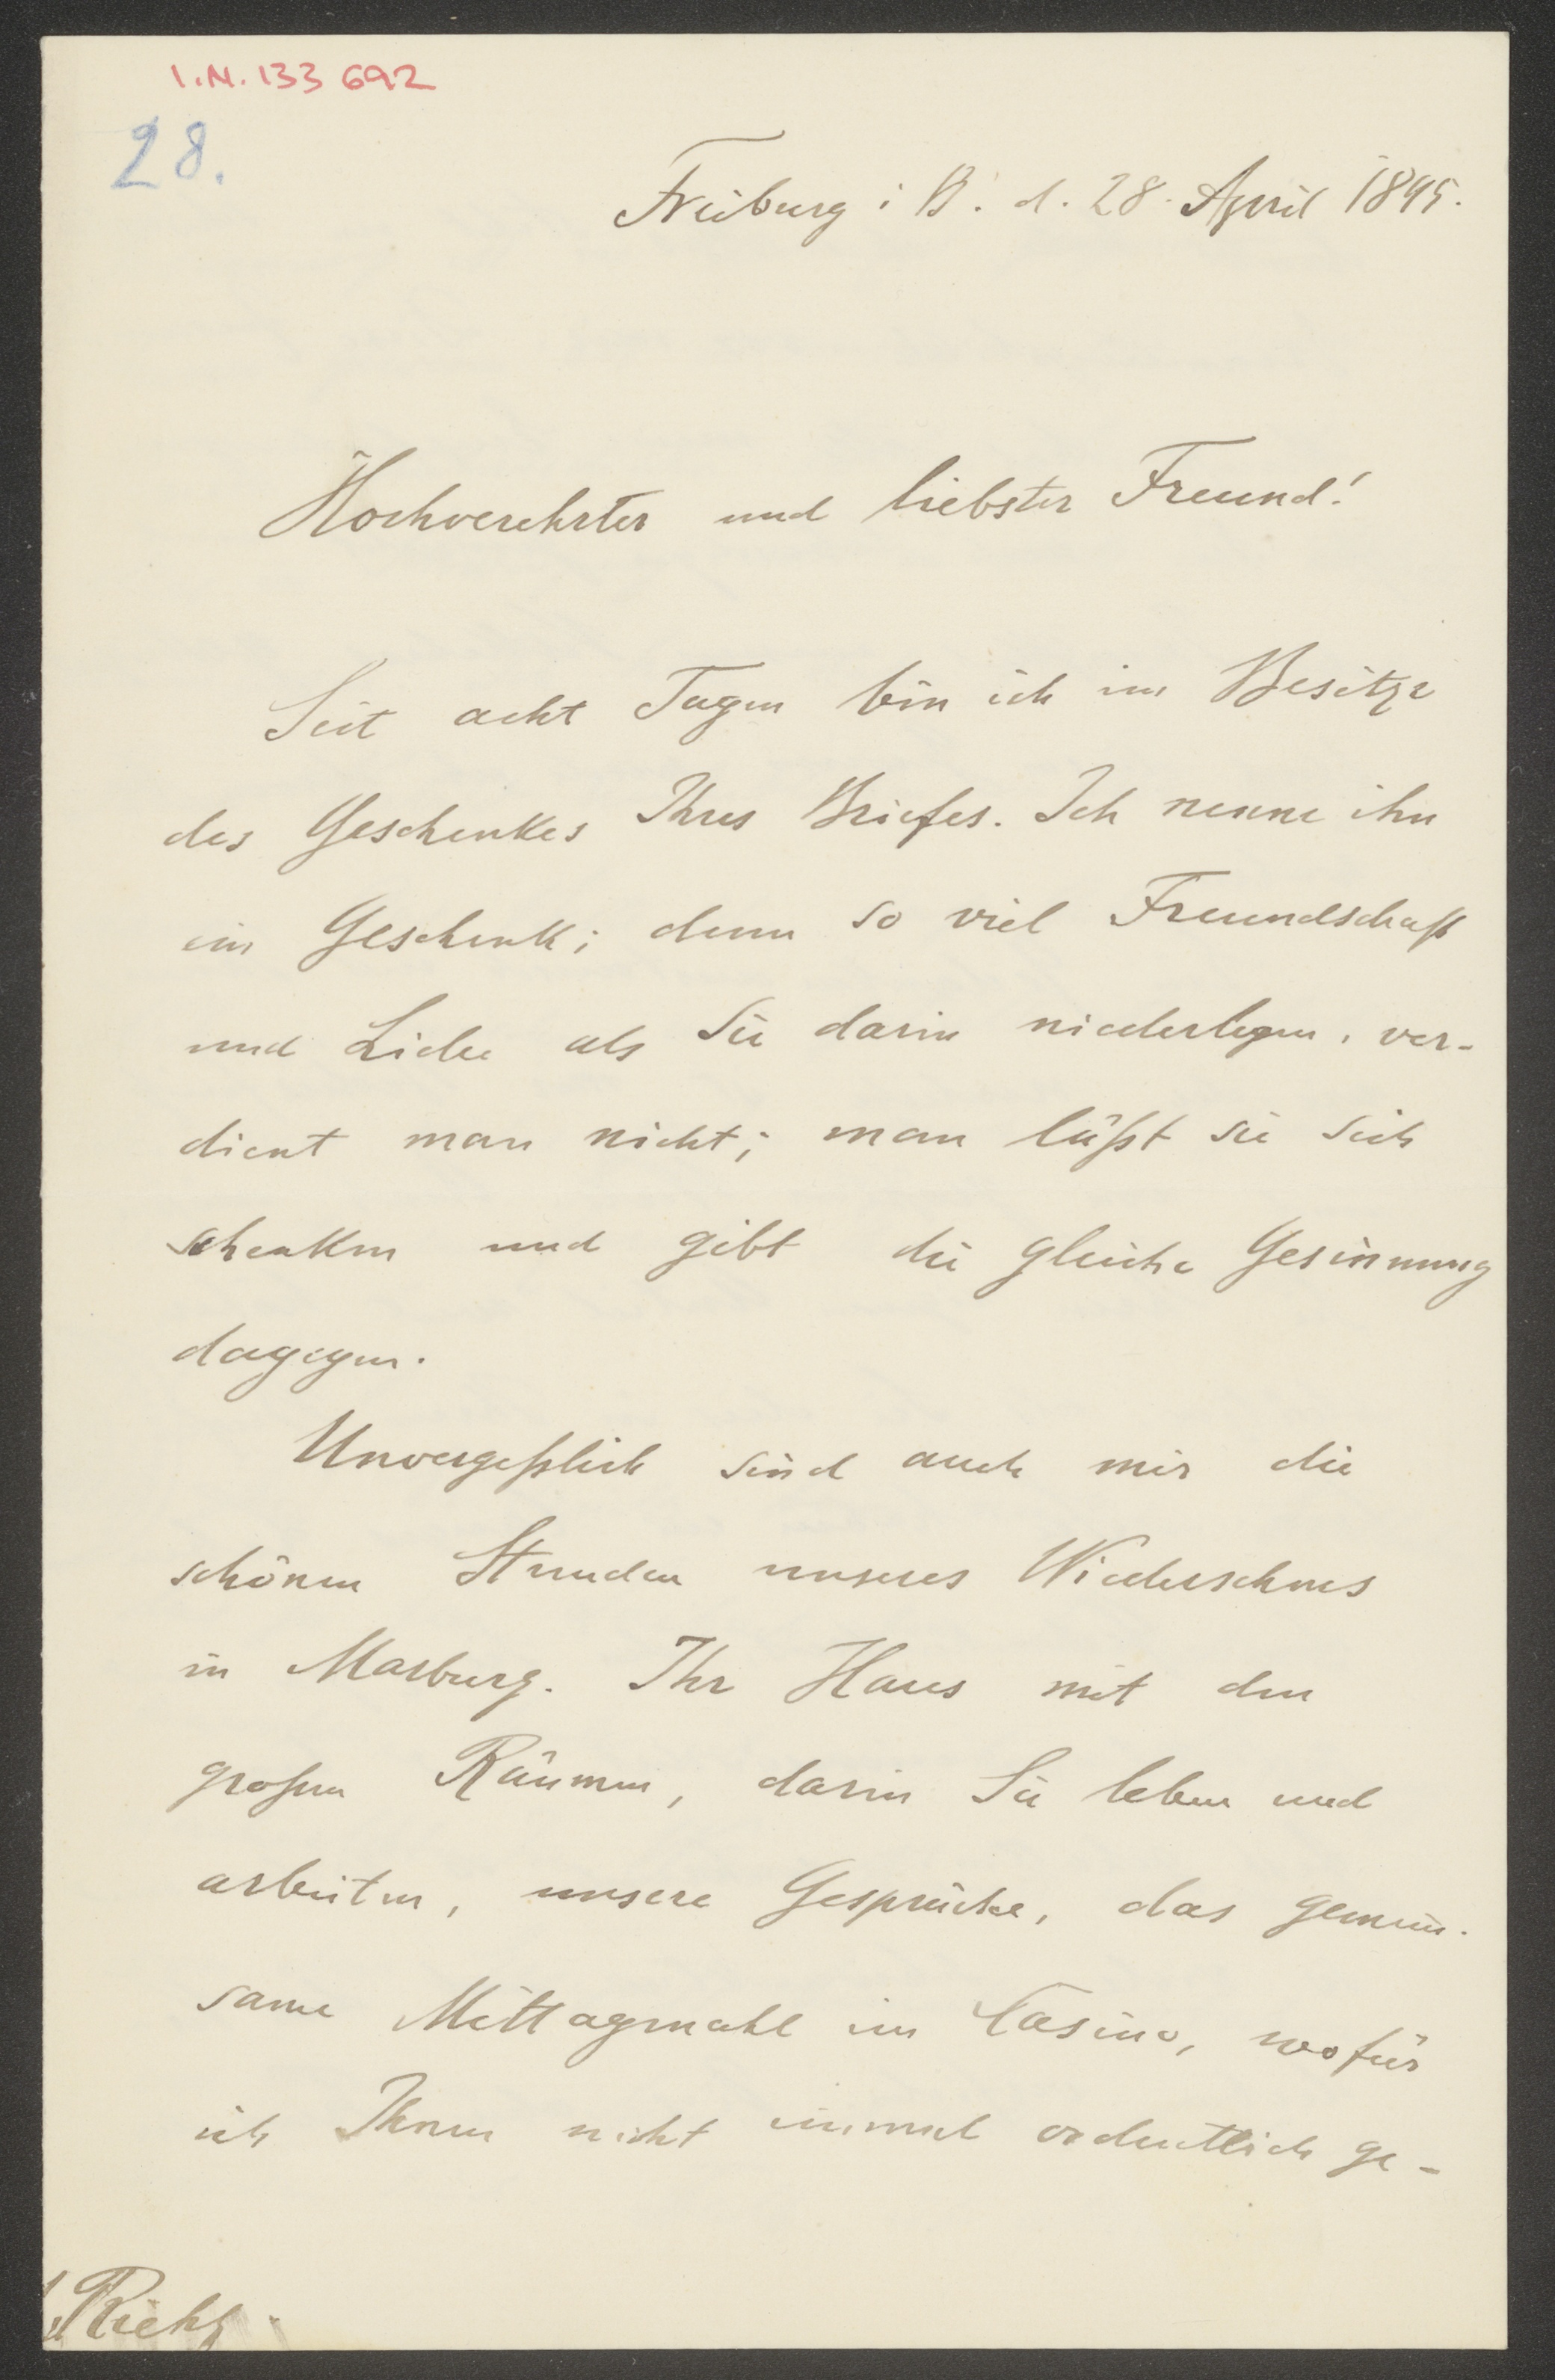 I.N. 133 692
28.
Freiburg i B. d. 28. April 1895.
Hochverehrter und liebster Freund!
Seit acht Tagen bin ich im Besitze
des Geschenkes Ihres Briefes. Ich nenne ihn
ein Geschenk; denn so viel Freundschaft
und Liebe als Sie darin niederlegen, ver-
dient man nicht; man läßt sie sich
schenken und gibt die gleiche Gesinnung
dagegen.
Unvergeßlich sind auch mir die
schönen Stunden unseres Wiedersehens
in Marburg. Ihr Haus mit den
großen Räumen, darin Sie leben und
arbeiten, unsere Gespräche, das gemein-
same Mittagmahl im Casino, wofür
ich Ihnen nicht einmal ordentlich ge-
Riehl